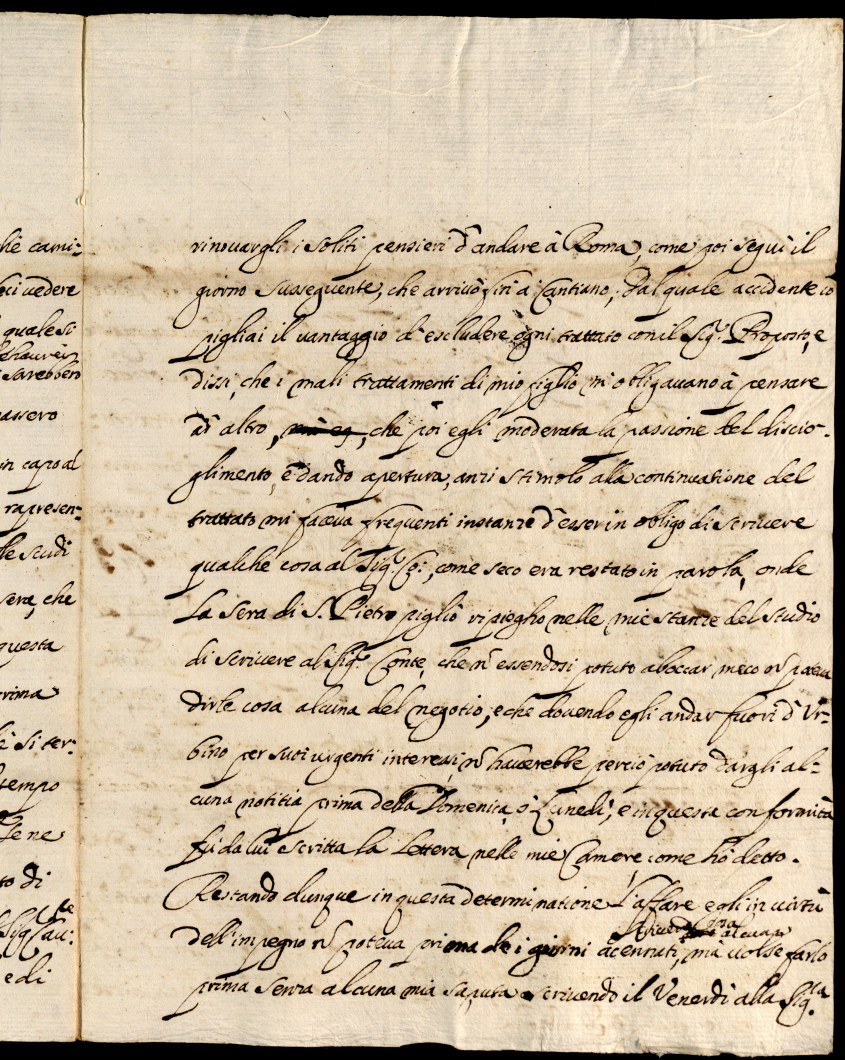 hè cami:
oci uedere
quale si
sarebbero
assero
in capo al
rapresen:
le scudi
sera, che
questa
rima
è si ter:
tempo
se ne
to di
Sig.r Cau:te
e di
rinouargli i soliti pensieri d'andare à Roma, come poi seguì il
giorno susseguente, che arriuò sin a Cantiano, dal quale accidente io
pigliai il uantaggio d'escludere ogni trattato con il Sig.r Proposto, e
dissi, che i mali trattamenti di mio figlio mi obligauano à pensare
ad altro, che poi egli moderata la passione del discio:
glimento, e dando apertura, anzi stimolo alla continuatione del
trattato mi faceua frequenti instanze d'esser in obligo di scriuere
qualche cosa al Sig.r Co:, come seco era restato in parola, onde
la sera di S. Pietro pigliò ripiegho nelle mie stanze del studio
di scriuere al Sig.r Conte, che nõ essendosi potuto aboccar meco nõ poteua
dirle cosa alcuna del negotio, e che douendo egli andar fuori d'Ur:
bino per suoi urgenti interessi, nõ hauerebbe perciò potuto dargli al:
cuna notitia prima della Domenica, ò Lunedì, e in questa conformità
fu da lui scritta la lettera nelle mie Camere, come hò detto.
Restando dunque in questa determinatione l'affare egli in uirtù
scriuere cosa alcuna
dell'impegno nõ poteua prima de i giorni acennati, mà uolse farlo
prima senza alcuna mia saputa scriuendo il Venerdì alla Sig.ra